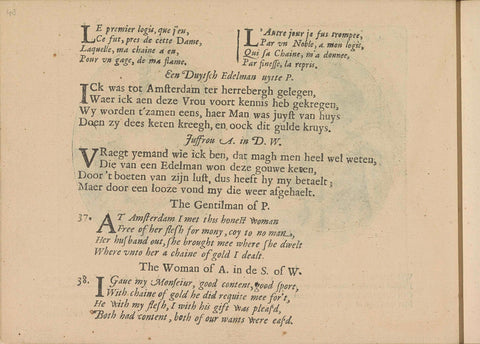 LE premier logis, que j'eu,
Ce fut, pres de cette Dame,
Laquelle, ma chaine a eu,
Pour vn gage, de ma flame.
L'Autre jour je fus trompee,
Par vn Noble, a mon logis,
Qui sa Chaine, m'a donnee,
Par finesse, la repris.
Een Duytsch Edelman uytte P.
ICk was tot Amsterdam ter herrebergh gelegen,
Waer ick aen deze Vrou voort kennis heb gekregen,
Wy worden t'zamen eens, haer Man was juyst van huys
Doen zy dees keten kreegh, en oock dit gulde kruys.
Juffrou A. in D. W.
VRaegt yemand wie ick ben, dat magh men heel wel weten,
Die van een Edelman won deze gouwe keten,
Door 't boeten van zijn lust, dus heeft hy my betaelt;
Maer door een looze vond my die weer afgehaelt.
The Gentilman of P.
37. AT Amsterdam I met this honest woman
Free of her flesh for mony, coy to no man,
Her husband out, she brought mee where she dwelt
Where vnto her a chaine of gold I dealt.
The Woman of A. in de S. of W.
38. I Gaue my Monsieur, good content, good sport,
With chaine of gold he did requite mee for't,
He with my flesh, I with his gift was pleasd,
Both had content, both of our wants were easd.